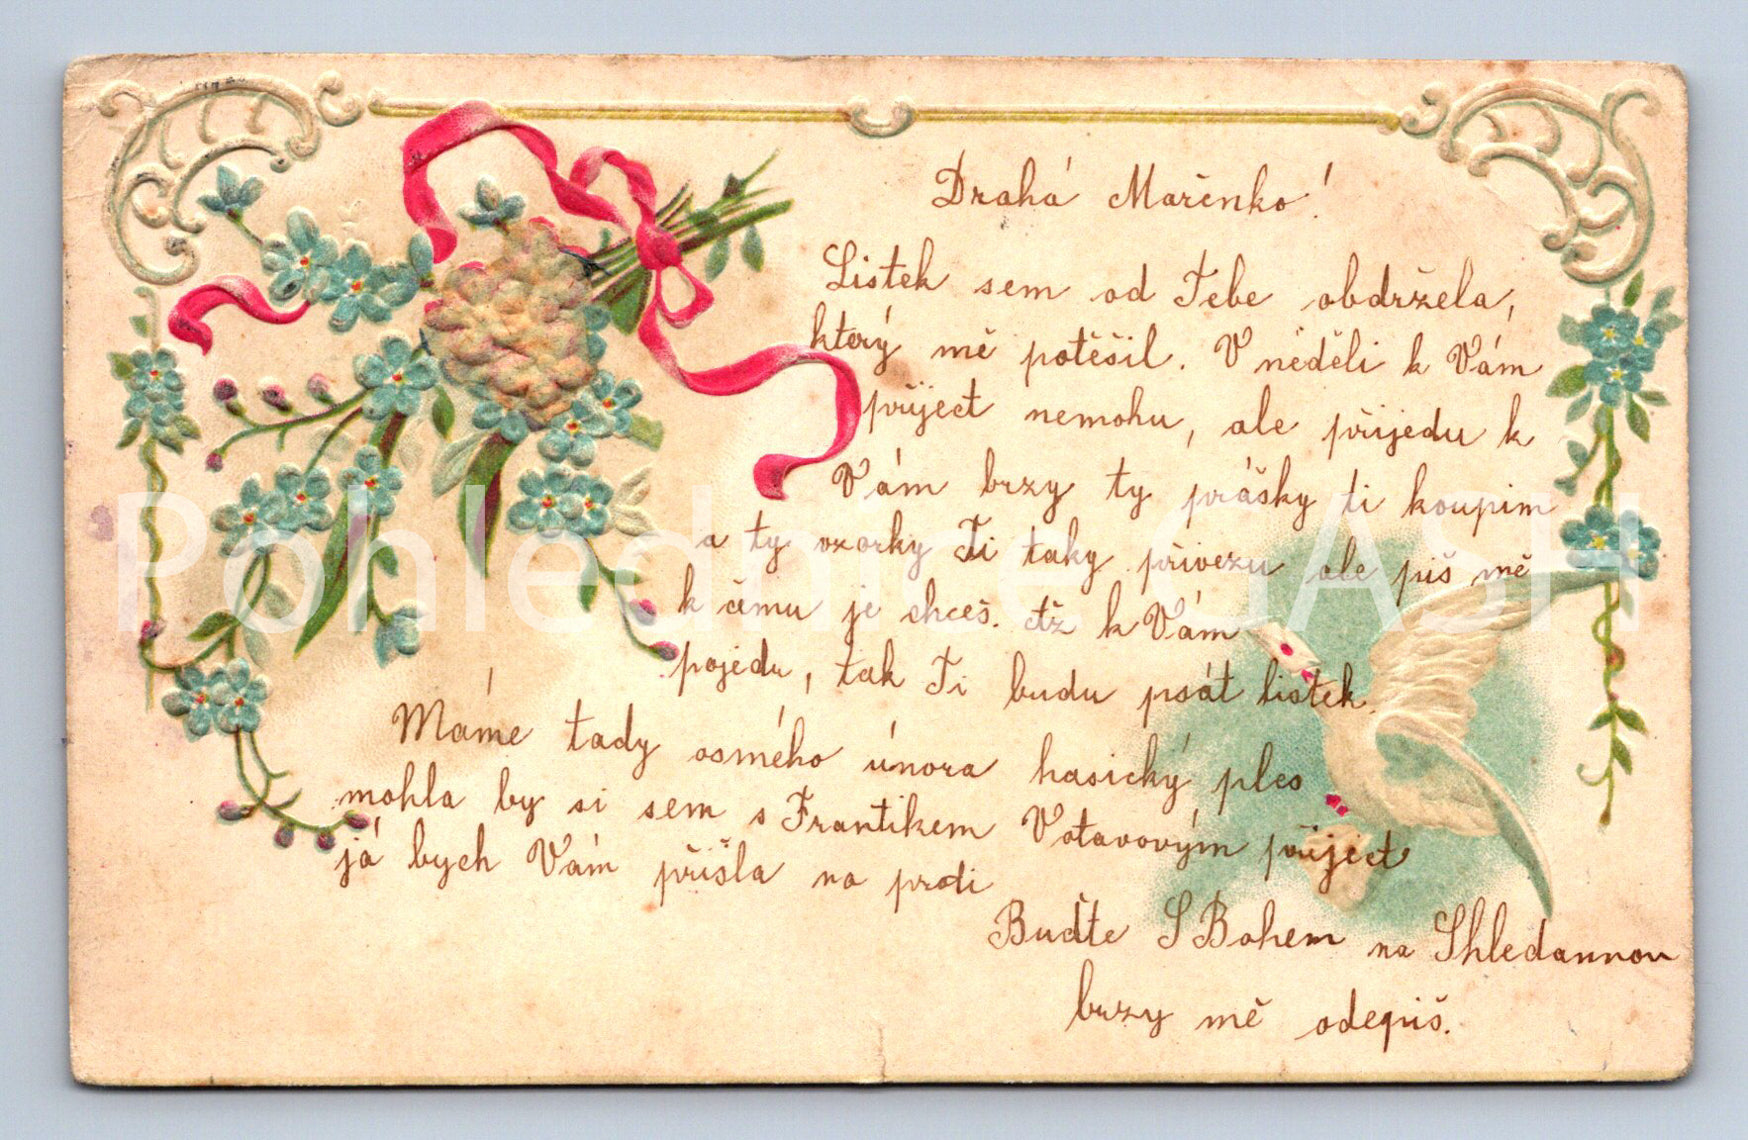 Drahá Mařenko!
Lístek sem od Tebe obdržela,
který mě potěšil. V néděli k Vám
přiject nemohu, ale přijedu k
Vám brzy ty prášky ti koupim
a ty vzorky Ti taky přivezu ale piš mě
k čemu je chceš. až k Vám
pojedu, tak Ti budu psát listek.
Máme tady osmého února hasický ples
mohla by si sem s Frantíkem Votavovým přiject
já bych Vám přišla na proti
Buďte S Bohem na Shledannou
brzy mě odepiš.
Pohlednice GASH